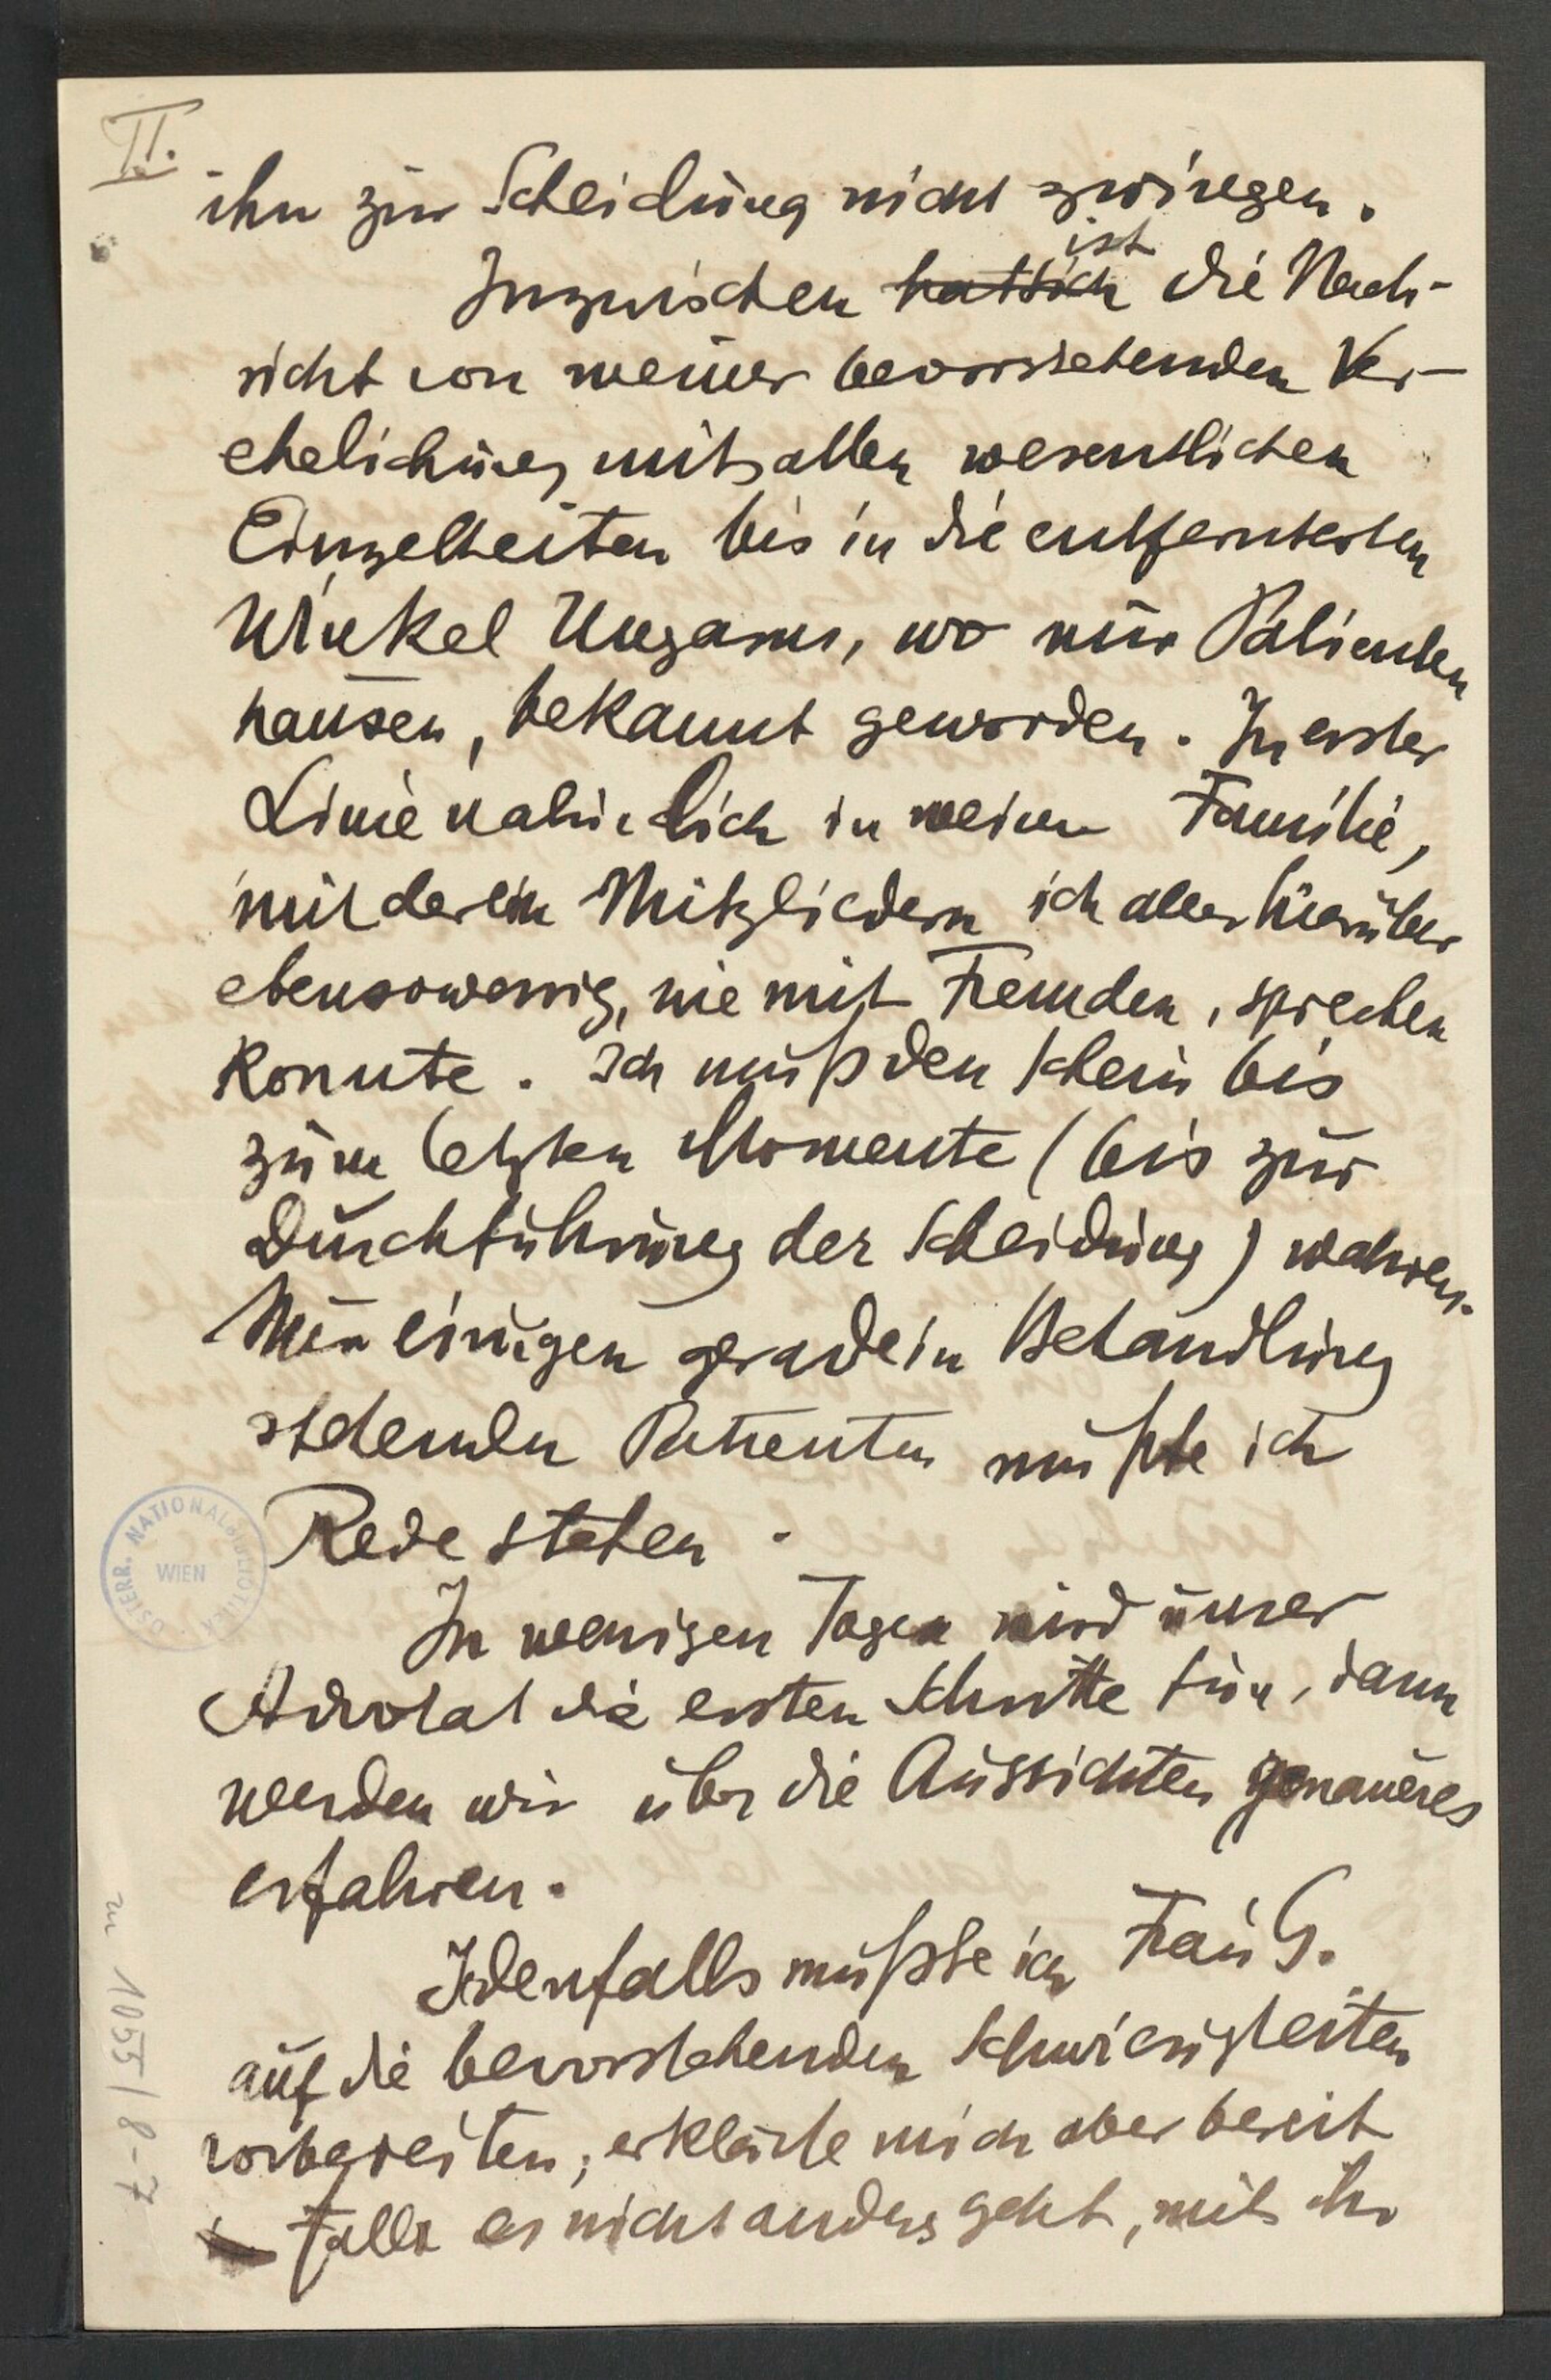 II.
ihn zur Scheidung nicht zwingen.
Inzwischen hat sich ist die Nach-
richt von meiner bevorstehenden Ver-
ehelichung mit allen wesentlichen
Einzelheiten bis in die entferntesten
Winkel Ungarns, wo nur Patienten
hausen, bekannt geworden. In erster
Linie natürlich in meiner Familie,
mit deren Mitgliedern ich aber hierüber
ebensowenig, wie mit Fremden, sprechen
konnte. Ich muß den Schein bis
zum letzten Momente (bis zur
Durchführung der Scheidung) wahren.
Nur einigen gerade in Behandlung
stehenden Patienten mußte ich
Rede stehen.
In wenigen Tagen wird unser
Advokat die ersten Schritte tun, dann
werden wir über die Aussichten genaueres
erfahren.
Jedenfalls mußte ich Frau G.
auf die bevorstehenden Schwierigkeiten
vorbereiten, erklärte mich aber bereit
falls es nicht anders geht, mit ihr
ÖSTERR. NATIONALBIBLIOTHEK
WIEN
zu 1055/8-7